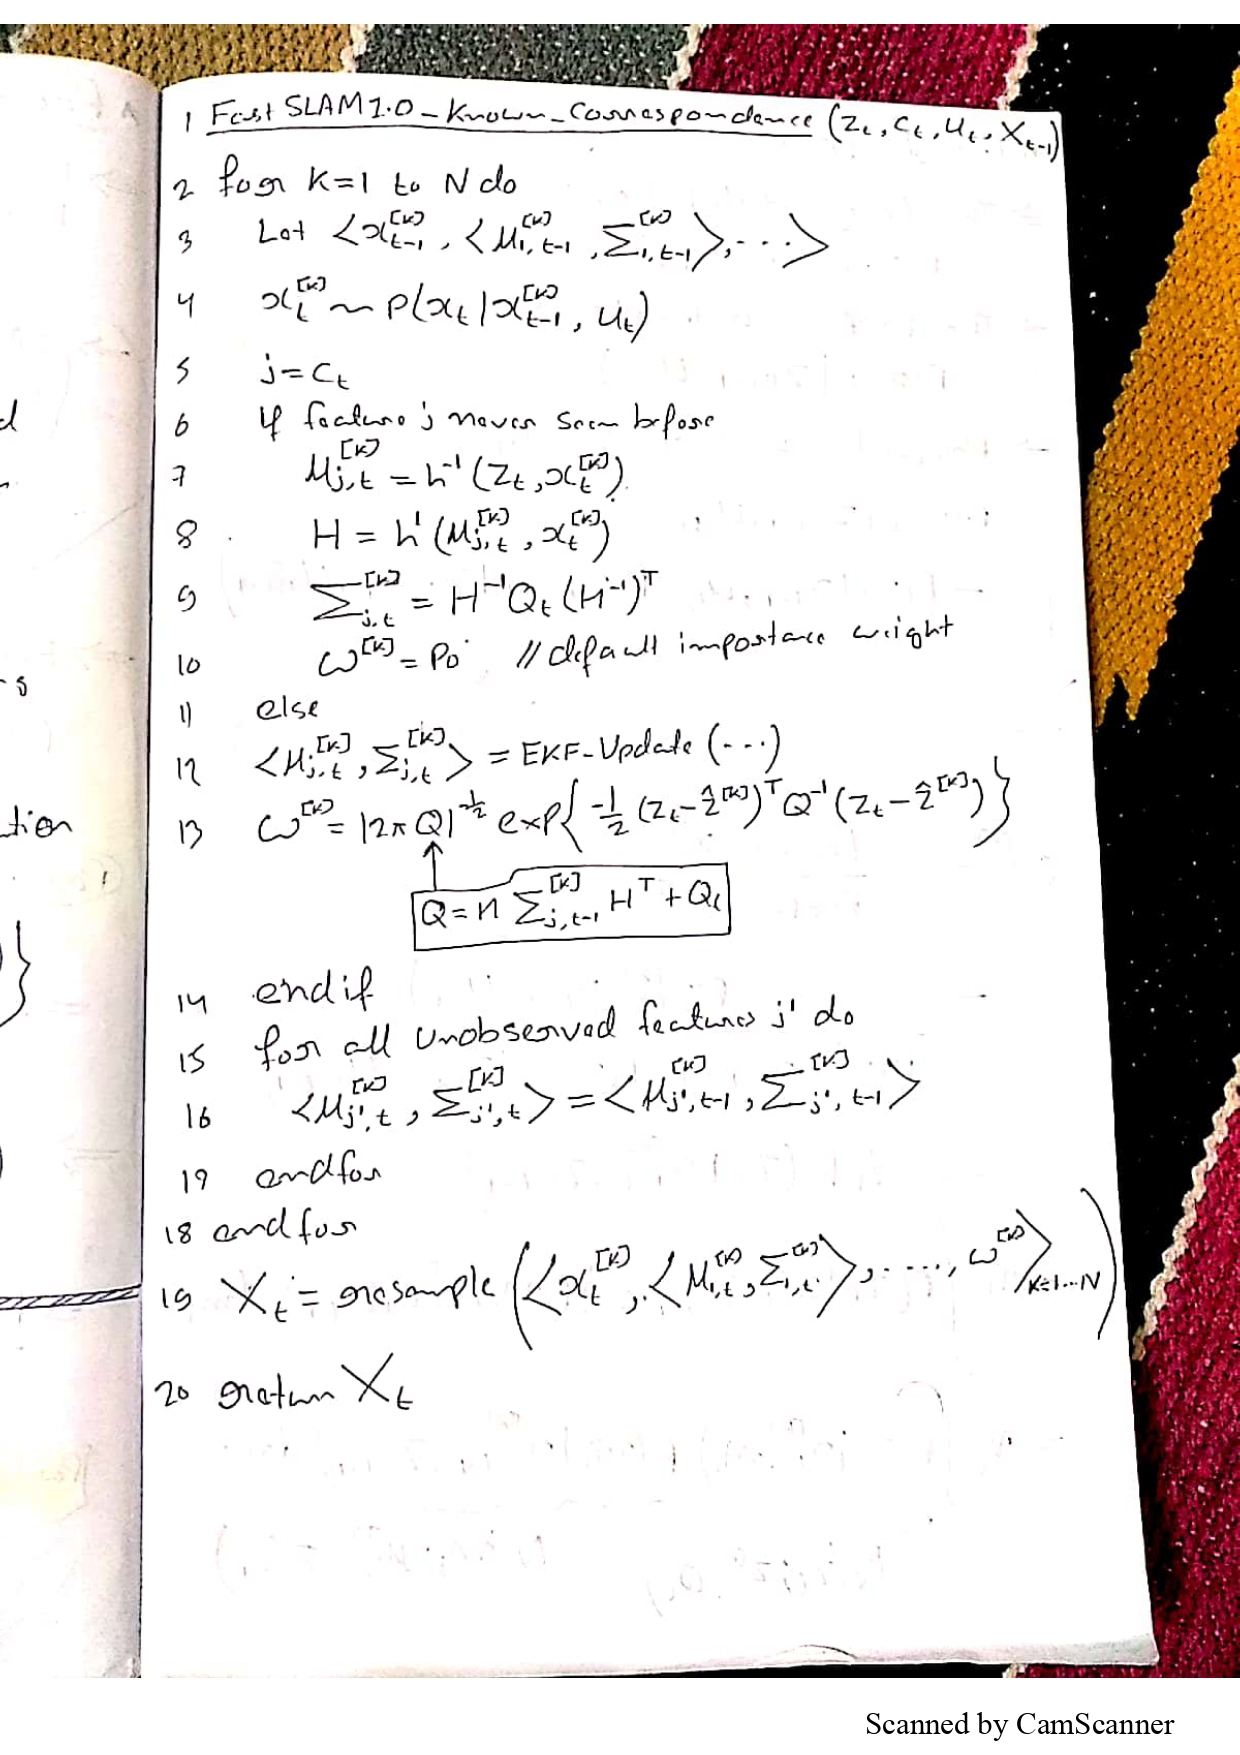 d
s
tion
1 Fast SLAM1.0_Known_Correspondence (z_t, c_t, u_t, X_{t-1})
2 for k=1 to N do
3 Let <x_{t-1}^{[k]}, <μ_{1,t-1}^{[k]}, Σ_{1,t-1}^{[k]}>, ...>
4 x_t^{[k]} ~ p(x_t | x_{t-1}^{[k]}, u_t)
5 j = c_t
6 if feature j never seen before
7 μ_{j,t}^{[k]} = h^{-1}(z_t, x_t^{[k]})
8 H = h'(μ_{j,t}^{[k]}, x_t^{[k]})
9 Σ_{j,t}^{[k]} = H^{-1} Q_t (H^{-1})^T
10 ω^{[k]} = p_0 // default importance weight
11 else
12 <μ_{j,t}^{[k]}, Σ_{j,t}^{[k]}> = EKF-Update (...)
13 ω^{[k]} = |2π Q|^{-1/2} exp{ -1/2 (z_t - ẑ^{[k]})^T Q^{-1} (z_t - ẑ^{[k]}) }
Q = H Σ_{j,t-1}^{[k]} H^T + Q_t
14 endif
15 for all unobserved features j' do
16 <μ_{j',t}^{[k]}, Σ_{j',t}^{[k]}> = <μ_{j',t-1}^{[k]}, Σ_{j',t-1}^{[k]}>
19 endfor
18 endfor
19 X_t = resample (<x_t^{[k]}, <μ_{1,t}^{[k]}, Σ_{1,t}^{[k]}>, ...., ω^{[k]}>_{k=1...N})
20 return X_t
Scanned by CamScanner